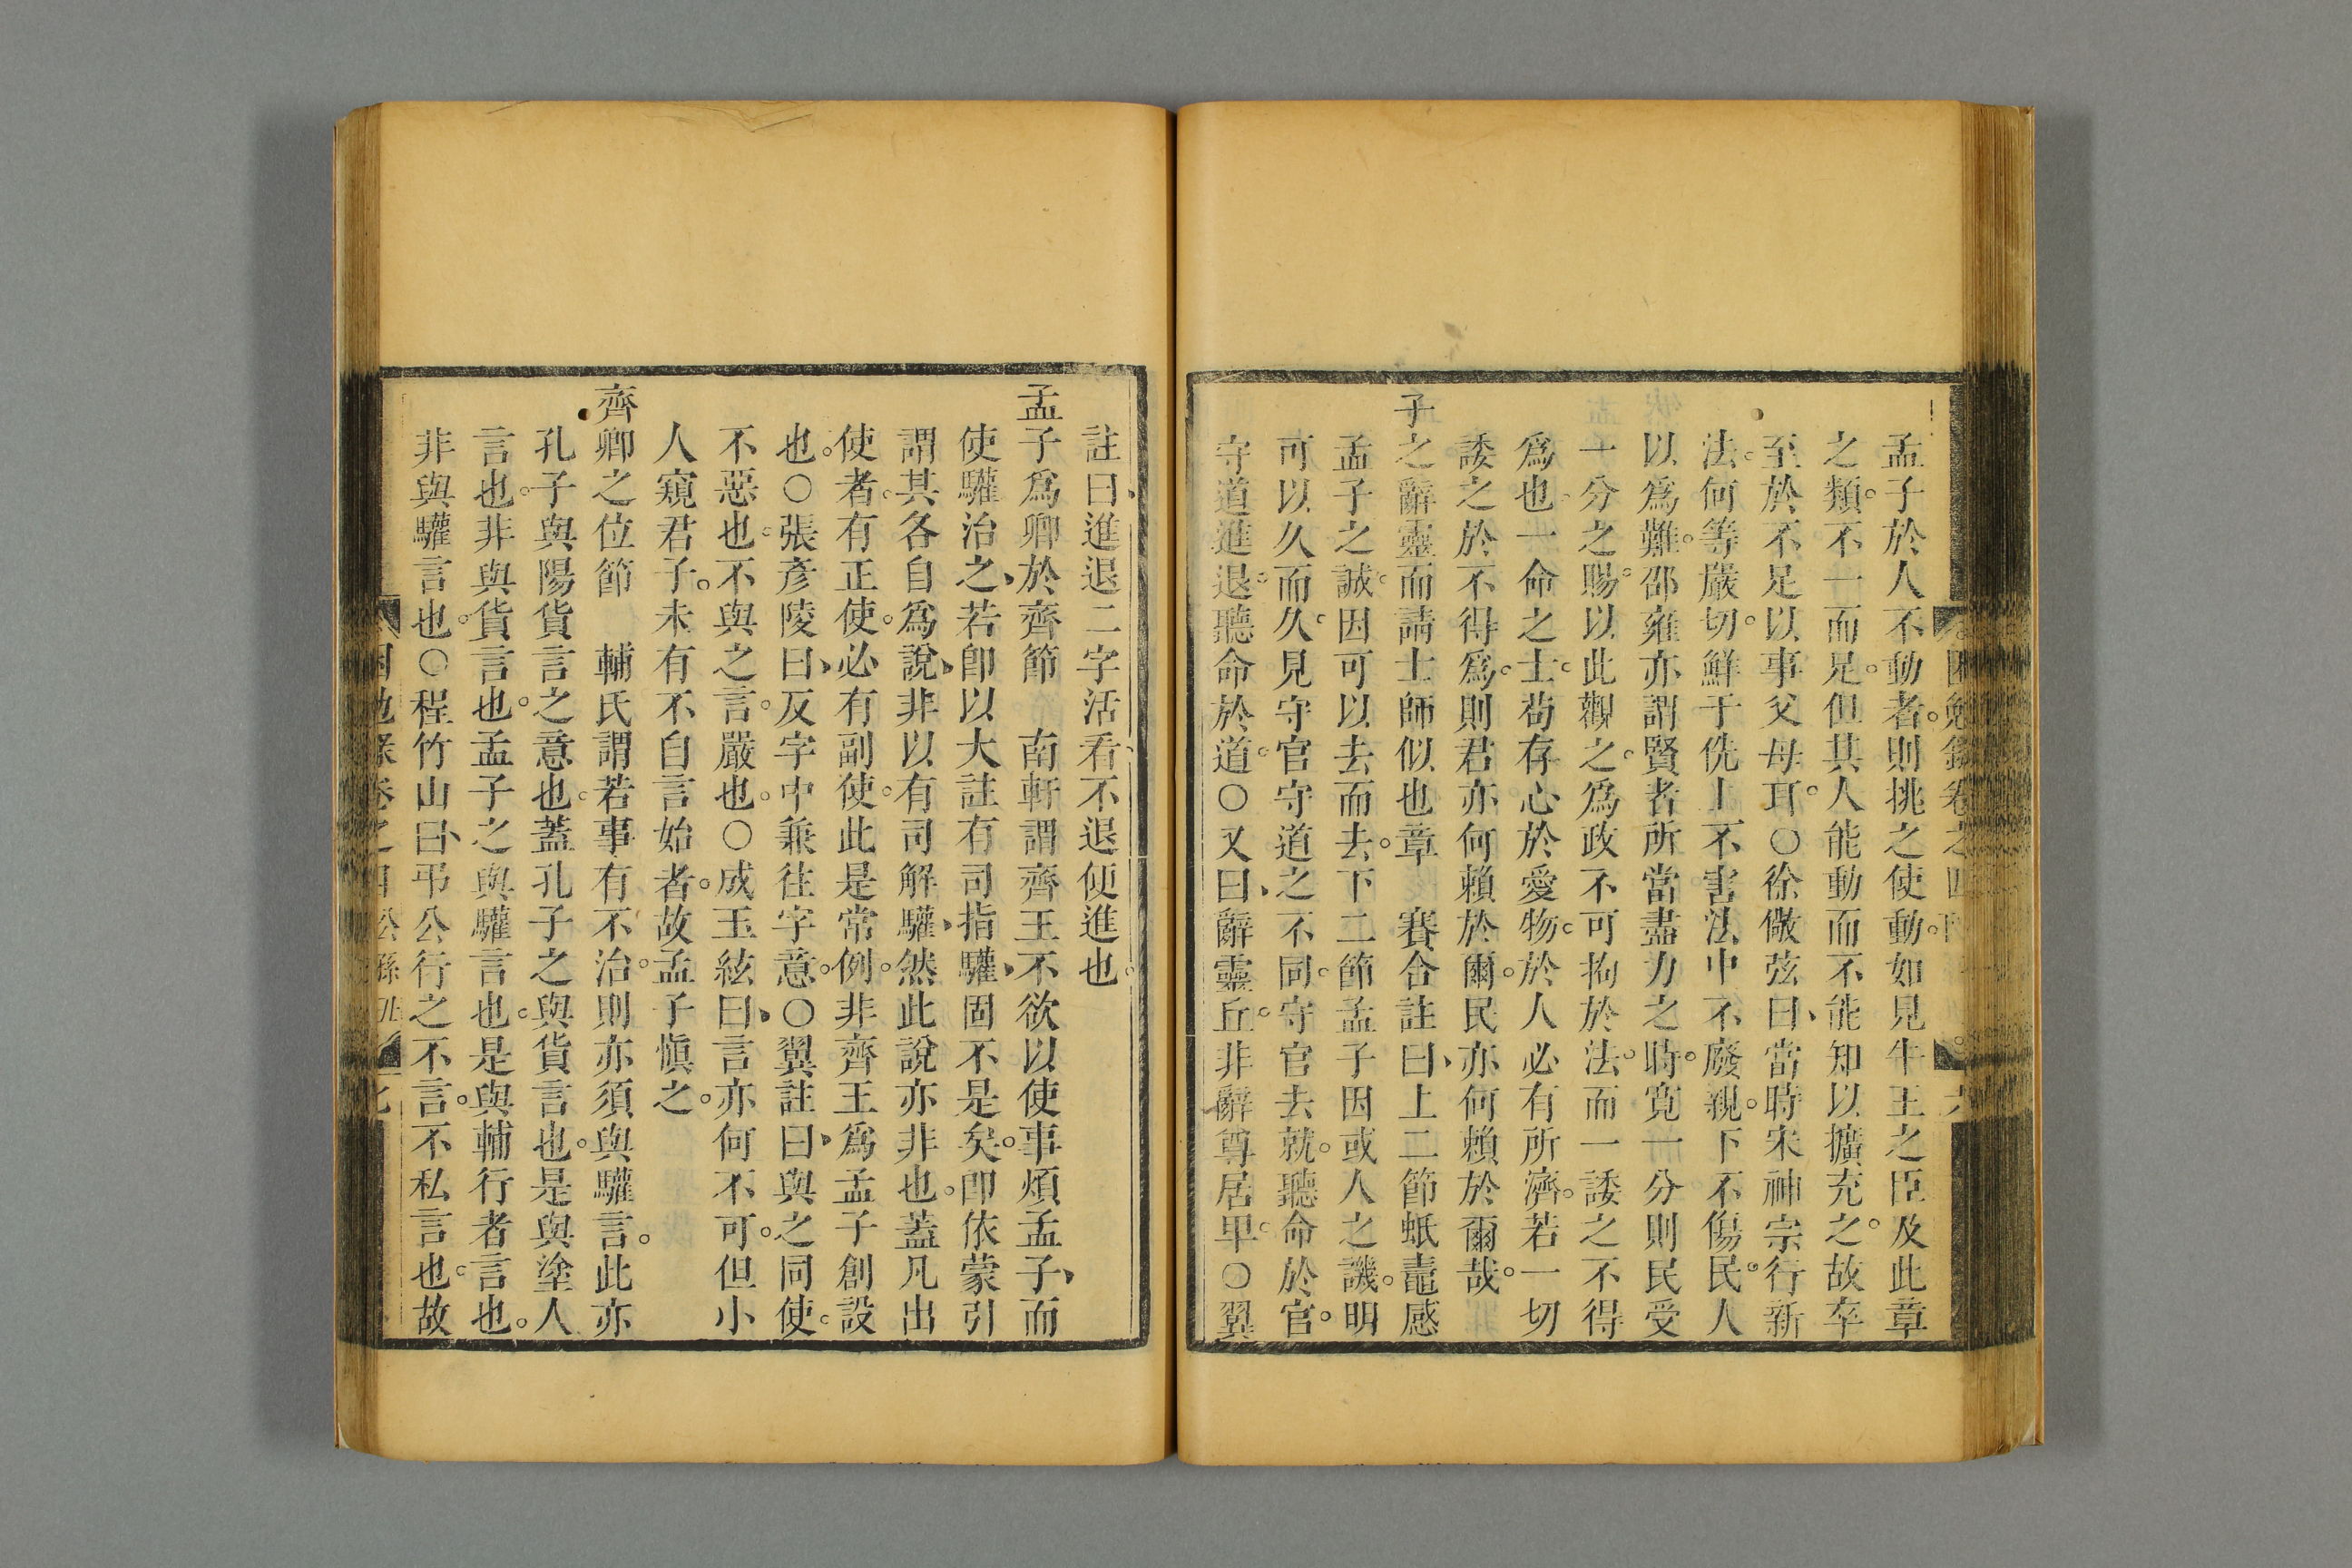 孟子於人不動者。則挑之使動。如見牛王之臣及此章
之類。不一而足。但其人能動而不能知以擴充之。故卒
至於不足以事父母耳。○徐儆弦曰、當時宋神宗行新
法。何等嚴切。鮮于侁上不害法中不廢親。下不傷民。人
以爲難。邵雍亦謂賢者所當盡力之時。寬一分則民受
一分之賜。以此觀之。爲政不可拘於法。而一諉之不得
爲也。一命之士。苟存心於愛物。於人必有所濟。若一切
諉之於不得爲。則君亦何賴於爾。民亦何賴於爾哉。
子之辭靈而請士師似也章 賽合註曰、上二節蚳鼃感
孟子之誠。因可以去而去。下二節孟子因或人之譏。明
可以久而久。見守官守道之不同。守官去就。聽命於官。
守道進退。聽命於道。○又曰、辭靈丘。非辭尊居卑。○翼
註曰、進退二字活看。不退便進也。
孟子爲卿於齊節 南軒謂齊王不欲以使事煩孟子、而
使驩治之、若卽以大註有司指驩、固不是矣。卽依蒙引
謂其各自爲說、非以有司解驩、然此說亦非也。蓋凡出
使者。有正使。必有副使。此是常例。非齊王爲孟子創設
也。○張彥陵曰、反字中兼往字意。○翼註曰、與之同使。
不惡也。不與之言。嚴也。○成玉絃曰、言亦何不可。但小
人窺君子。未有不自言始者。故孟子愼之。
齊卿之位節 輔氏謂若事有不治。則亦須與驩言。此亦
孔子與陽貨言之意也。蓋孔子之與貨言也。是與塗人
言也。非與貨言也。孟子之與驩言也。是與輔行者言也。
非與驩言也。○程竹山曰、弔公行之不言。不私言也。故